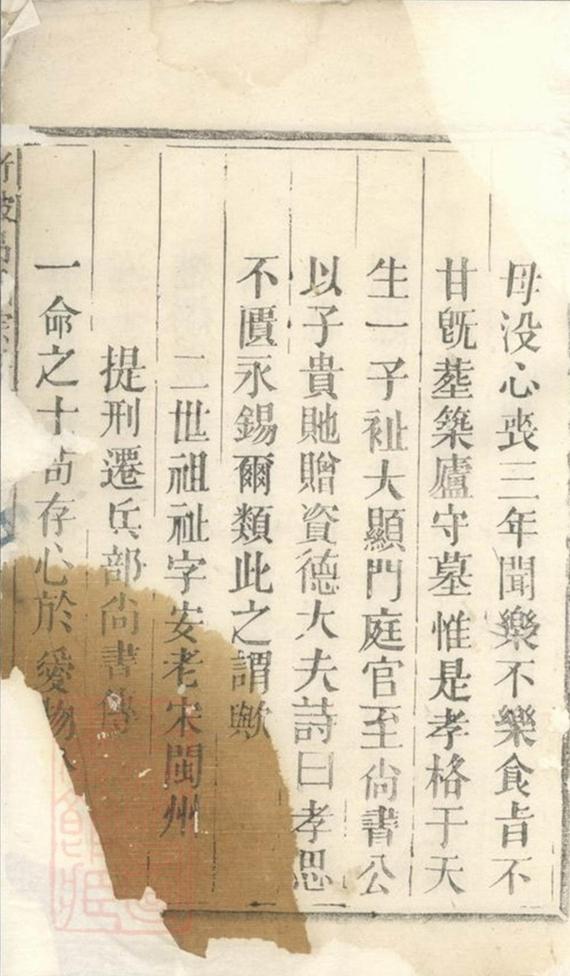 母没心丧三年聞樂不樂食旨不
甘旣塟築廬守墓惟是孝格于天
生一子祉大顯門庭官至尙書公
以子貴貤贈資德大夫詩曰孝思
不匱永錫爾類此之謂歟
二世祖祉字安老宋閩州
提刑遷兵部尙書傳
一命之士尚存心於愛物